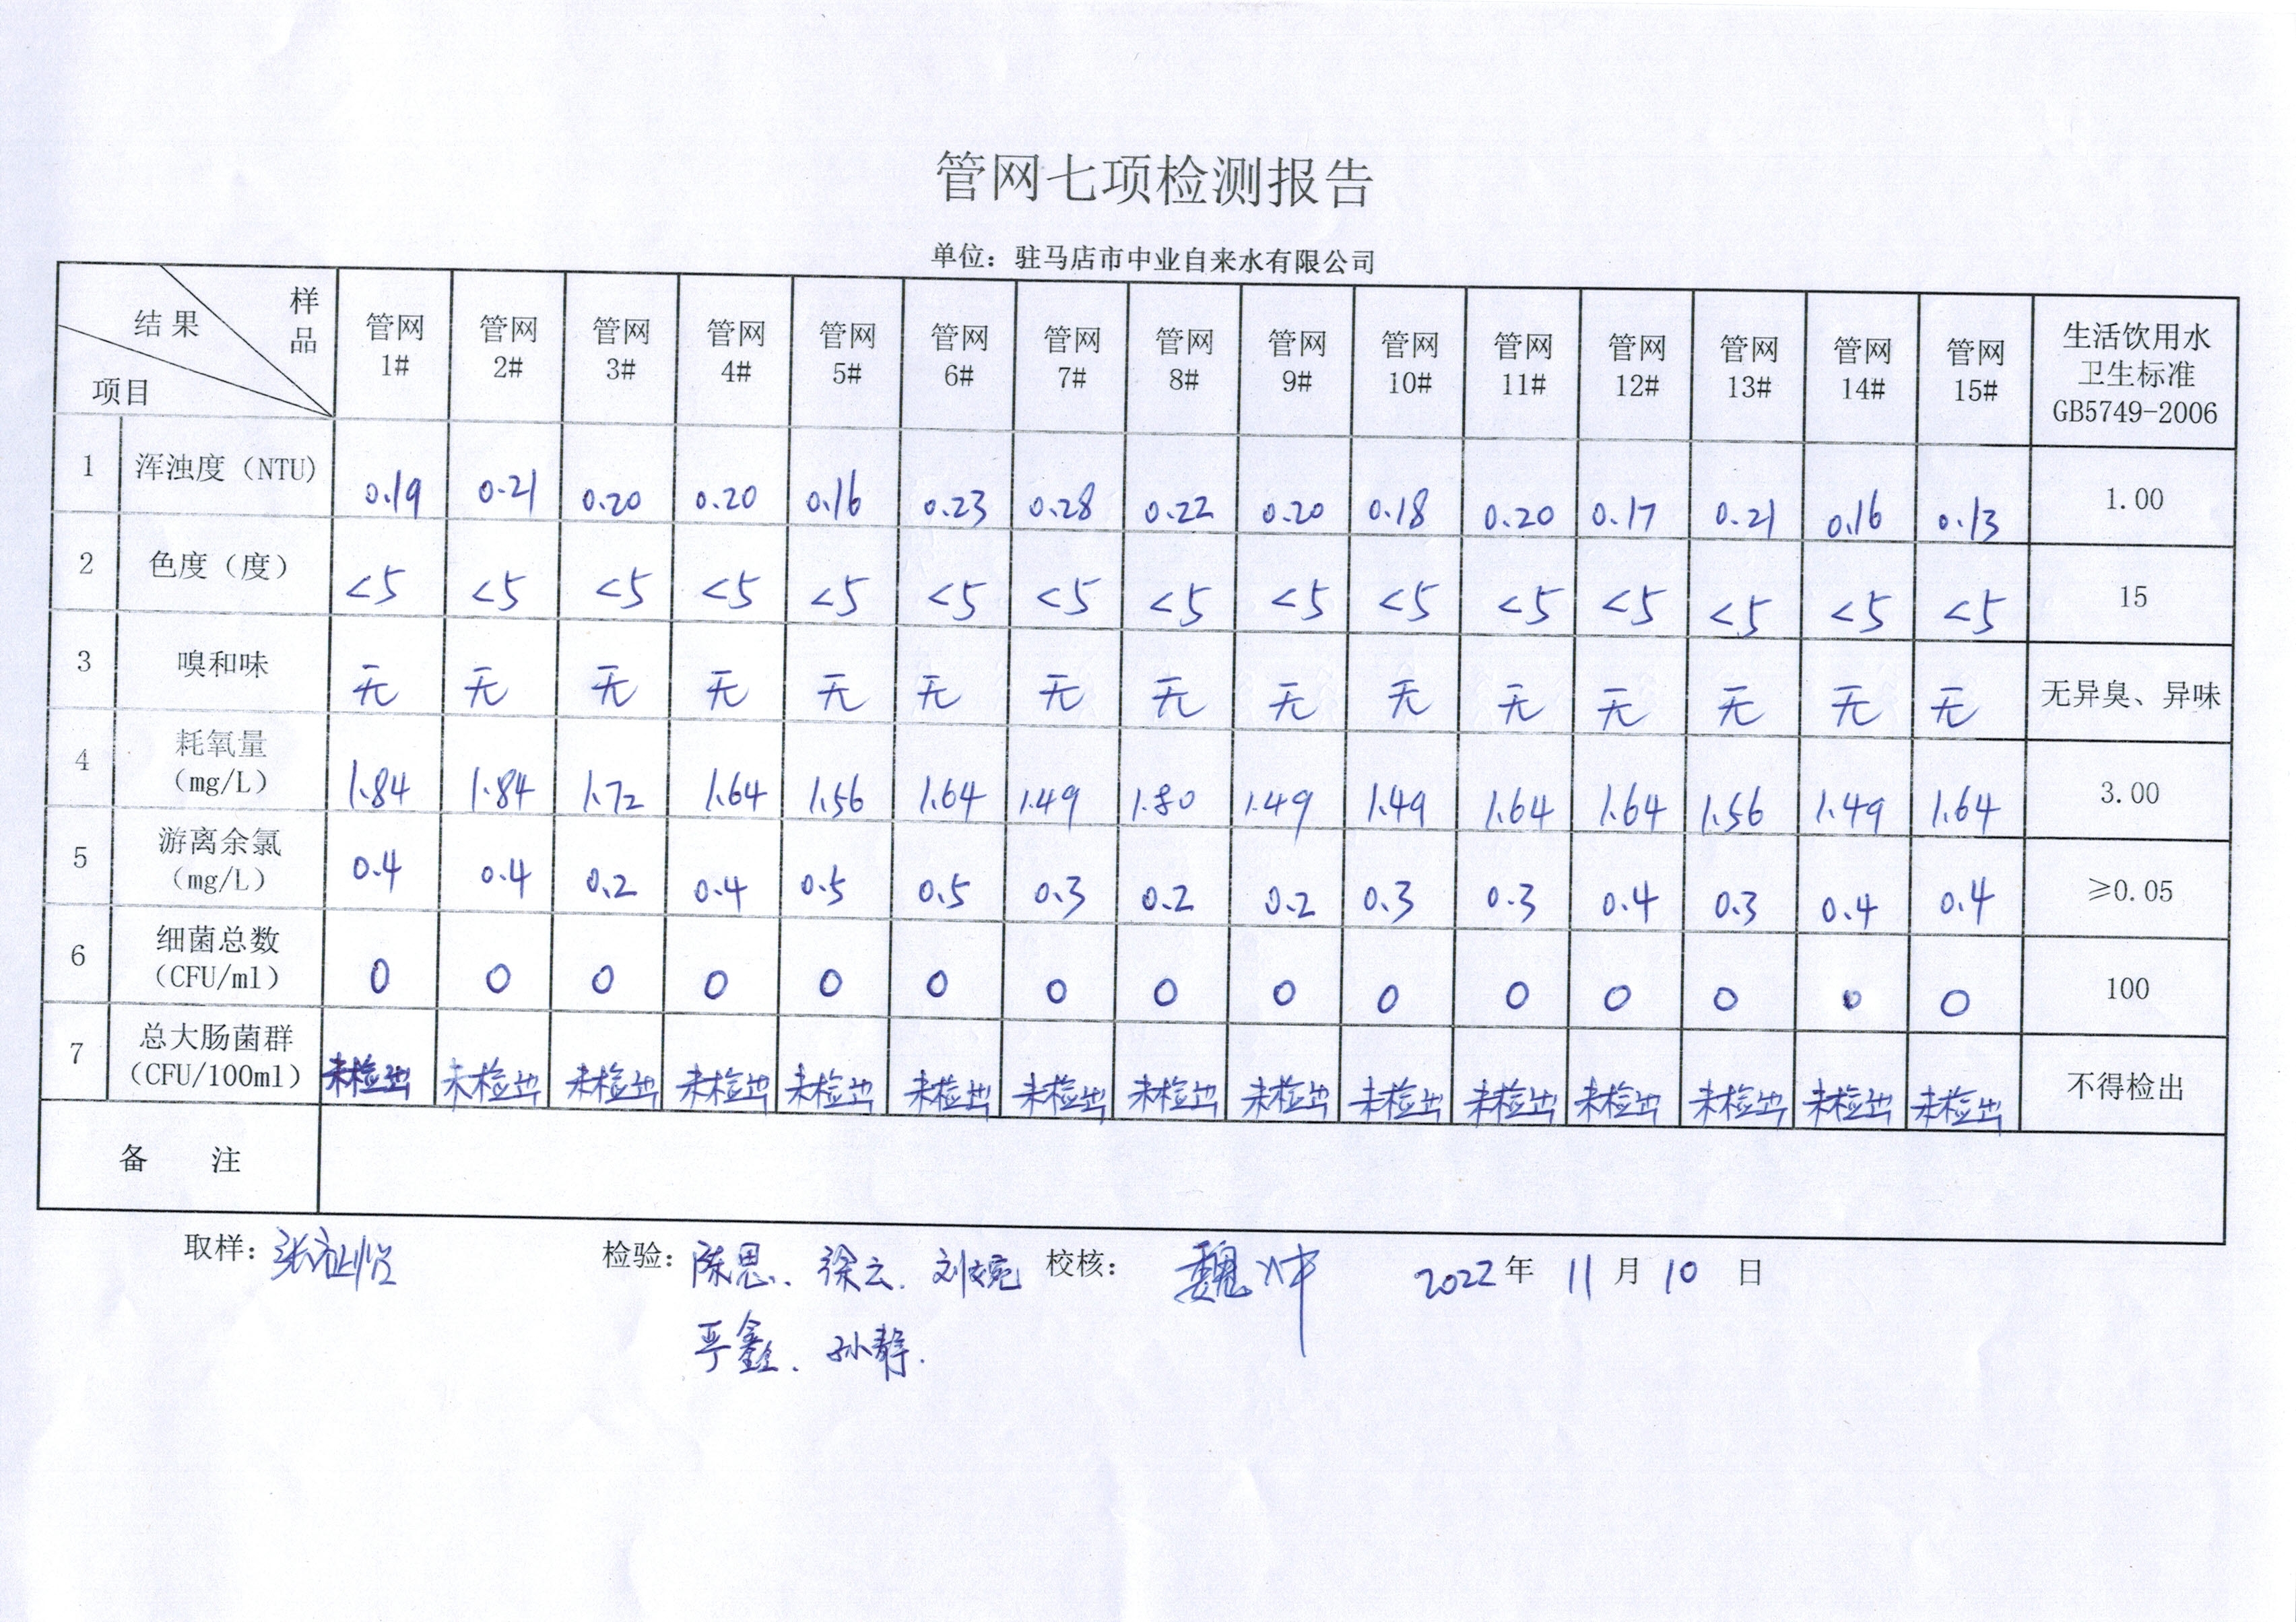 管网七项检测报告
单位：驻马店市中业自来水有限公司
结果 样品 项目 管网1# 管网2# 管网3# 管网4# 管网5# 管网6# 管网7# 管网8# 管网9# 管网10# 管网11# 管网12# 管网13# 管网14# 管网15# 生活饮用水卫生标准GB5749-2006
1 浑浊度（NTU） 0.19 0.21 0.20 0.20 0.16 0.23 0.28 0.22 0.20 0.18 0.20 0.17 0.21 0.16 0.13 1.00
2 色度（度） <5 <5 <5 <5 <5 <5 <5 <5 <5 <5 <5 <5 <5 <5 <5 15
3 嗅和味 无 无 无 无 无 无 无 无 无 无 无 无 无 无 无 无异臭、异味
4 耗氧量（mg/L） 1.84 1.84 1.72 1.64 1.56 1.64 1.49 1.80 1.49 1.49 1.64 1.64 1.56 1.49 1.64 3.00
5 游离余氯（mg/L） 0.4 0.4 0.2 0.4 0.5 0.5 0.3 0.2 0.2 0.3 0.3 0.4 0.3 0.4 0.4 ≥0.05
6 细菌总数（CFU/ml） 0 0 0 0 0 0 0 0 0 0 0 0 0 0 0 100
7 总大肠菌群（CFU/100ml） 未检出 未检出 未检出 未检出 未检出 未检出 未检出 未检出 未检出 未检出 未检出 未检出 未检出 未检出 未检出 不得检出
备 注
取样： 检验：陈思、徐云、刘婉 校核：魏冲 2022年 11月 10日
严鑫、孙静.